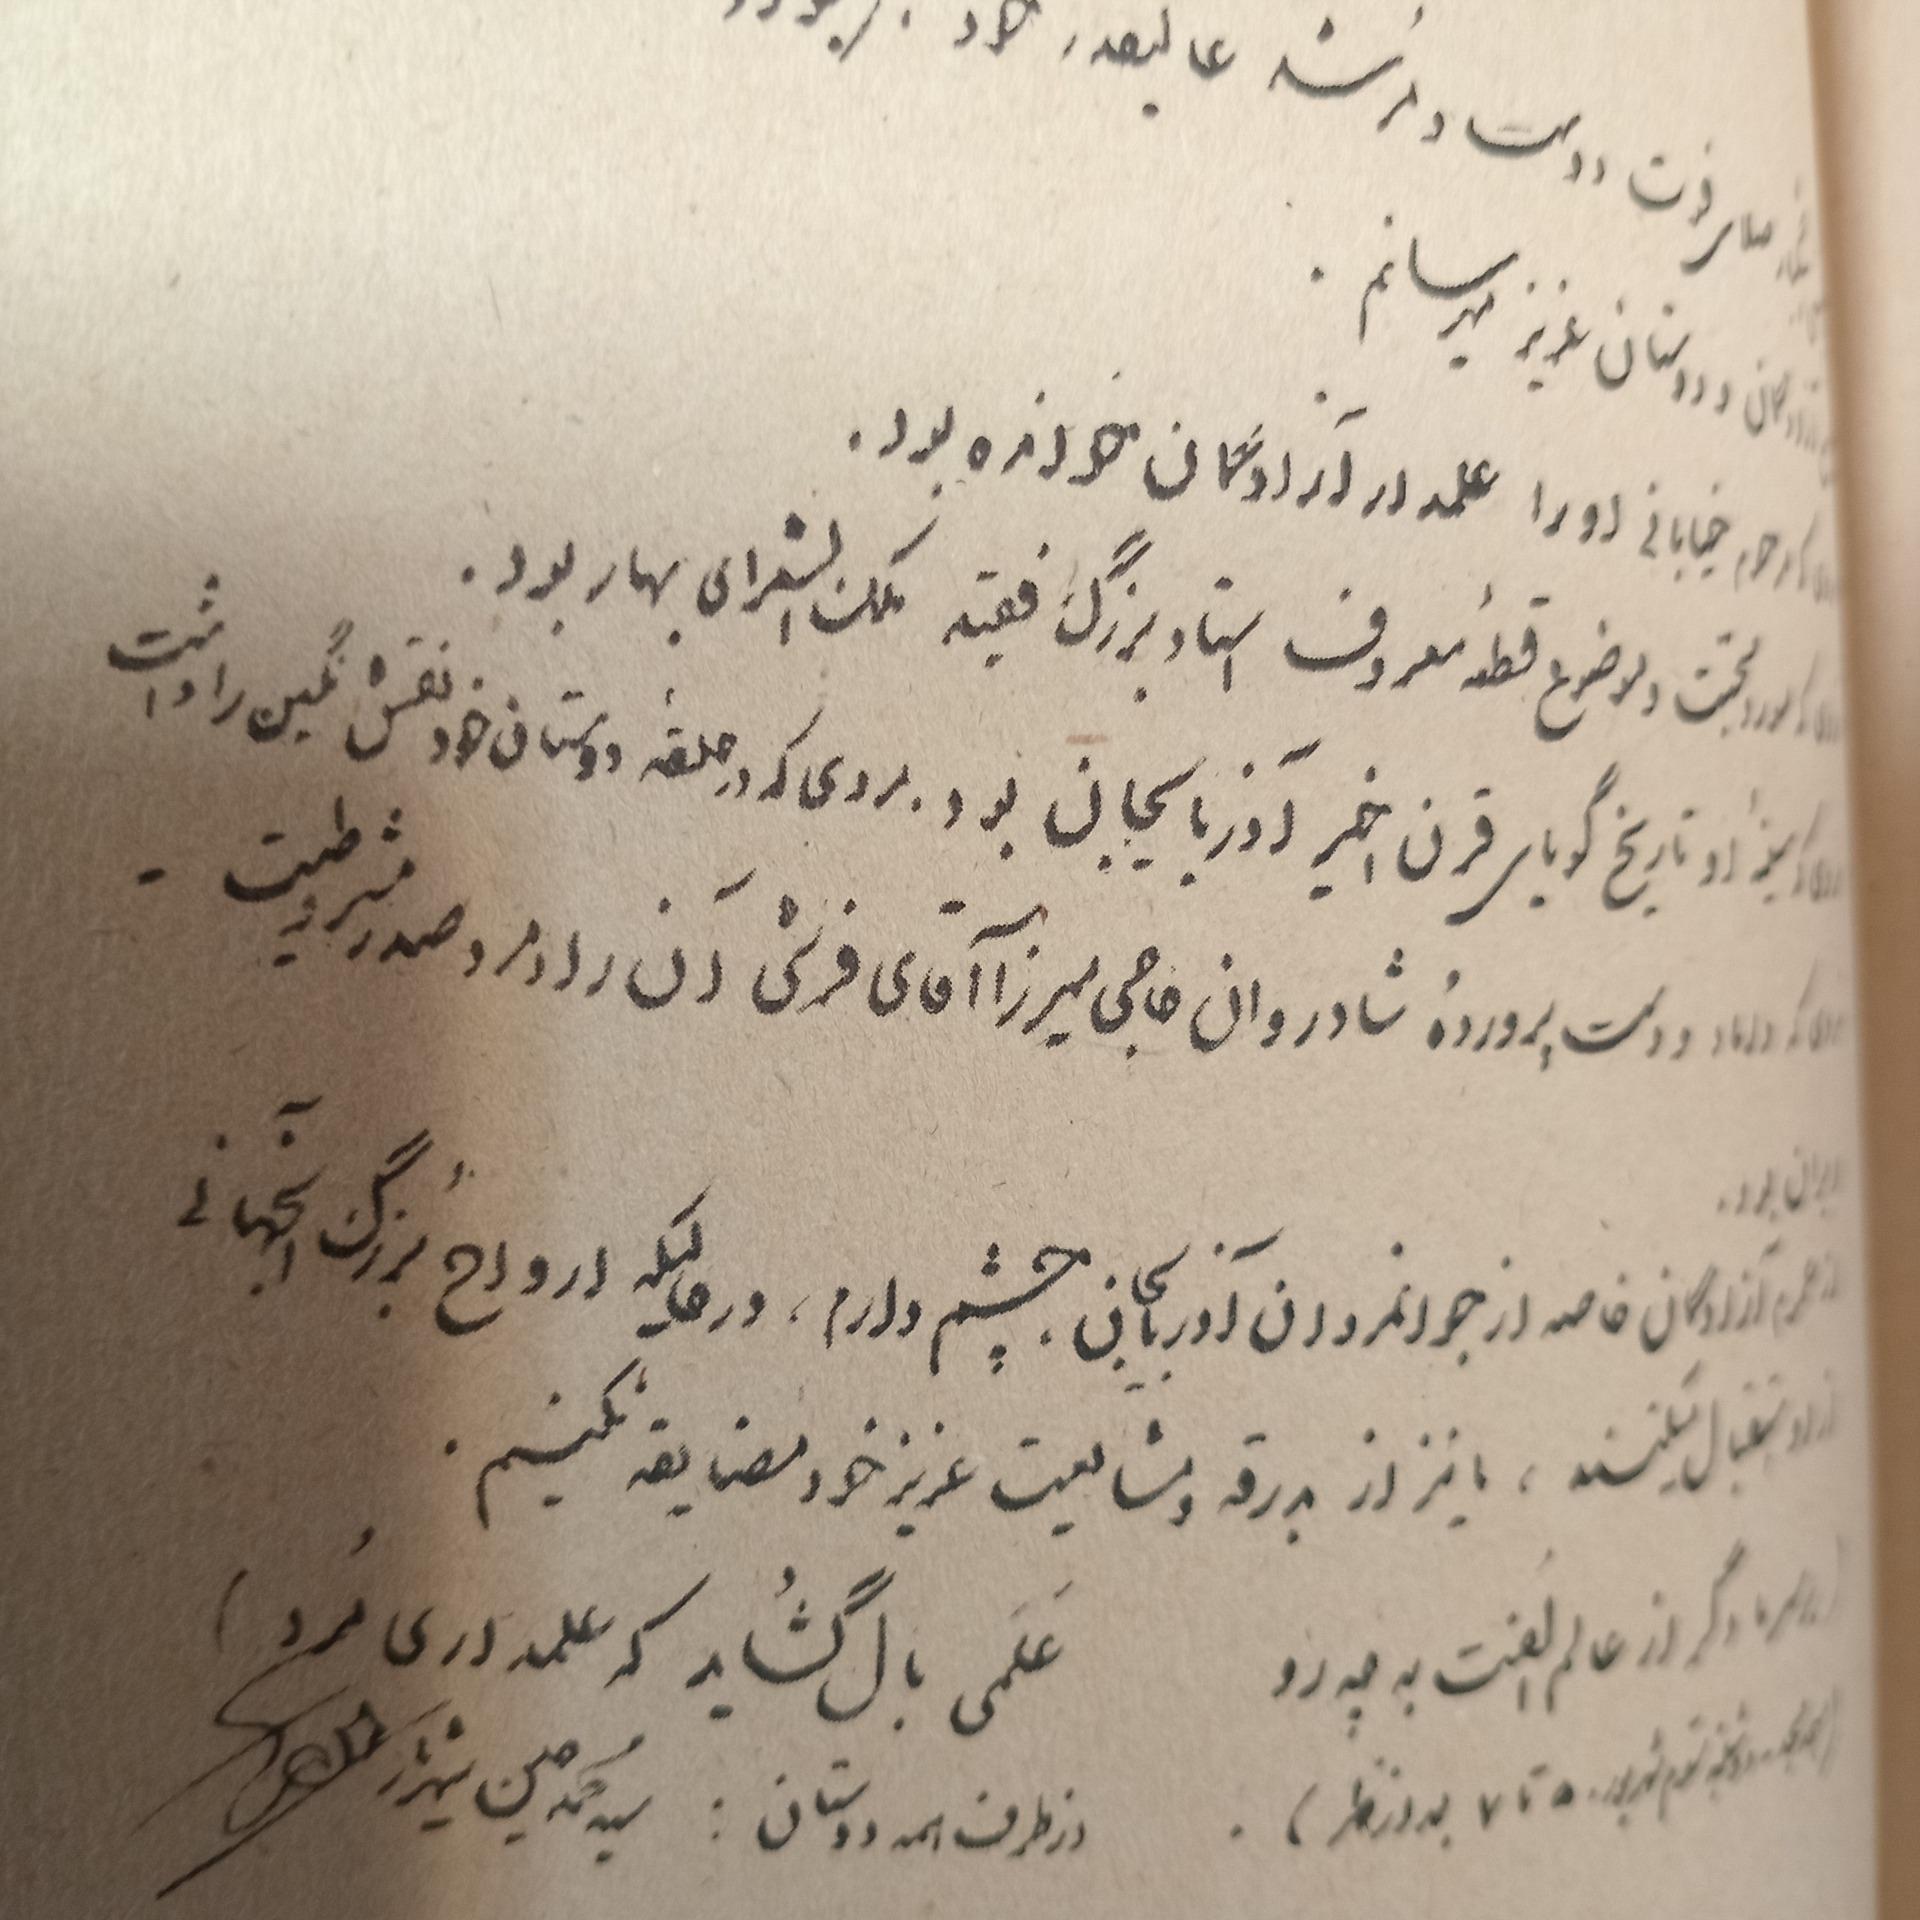 فوت دوست و مرشد عالیقدر خود
و دوستان عزیز میرسانم .
مرحوم خیابانی او را علمدار آزادگان خوانده بود .
موضوع قطعهٔ معروف استاد بزرگ فقید ملک الشعرای بهار بود .
او تاریخ گویای قرن اخیر آذربایجان بود . مردی که در حلقهٔ دوستان خود نقش نگین را داشت
که داماد و دست پروردهٔ شادروان حاجی میرزا آقای فرشی آن رادمرد صدر مشروطیت -
ایران بود .
آزادگان خاصه از جوانمردان آذربایجانی چشم دارم ، در حالیکه ارواح بزرگ آنجهانی
از او استقبال میکنند ، ما نیز از بدرقه و مشایعت عزیز خود مضایقه نکنیم .
دگر از عالم الفت به چه رو عَلَمی بال گشاید که علمداری مُرد )
۵ تا ۷ بعد از ظهر ) . از طرف همه دوستان : سید محمد حسین شهریار